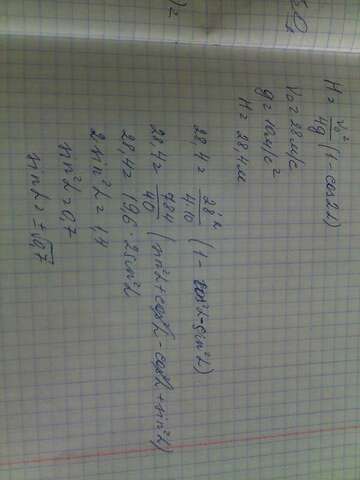 H = v₀²/4g (1 - cos2α)
V₀ = 28 м/с
g = 10 м/с²
H = 28,4 м
28,4 = 28²/4·10 (1 - cos²α - sin²α)
28,4 = 784/40 (sin²α + cos²α - cos²α + sin²α)
28,4 = 19,6 · 2sin²α
2sin²α = 1,4
sin²α = 0,7
sinα = ±√0,7